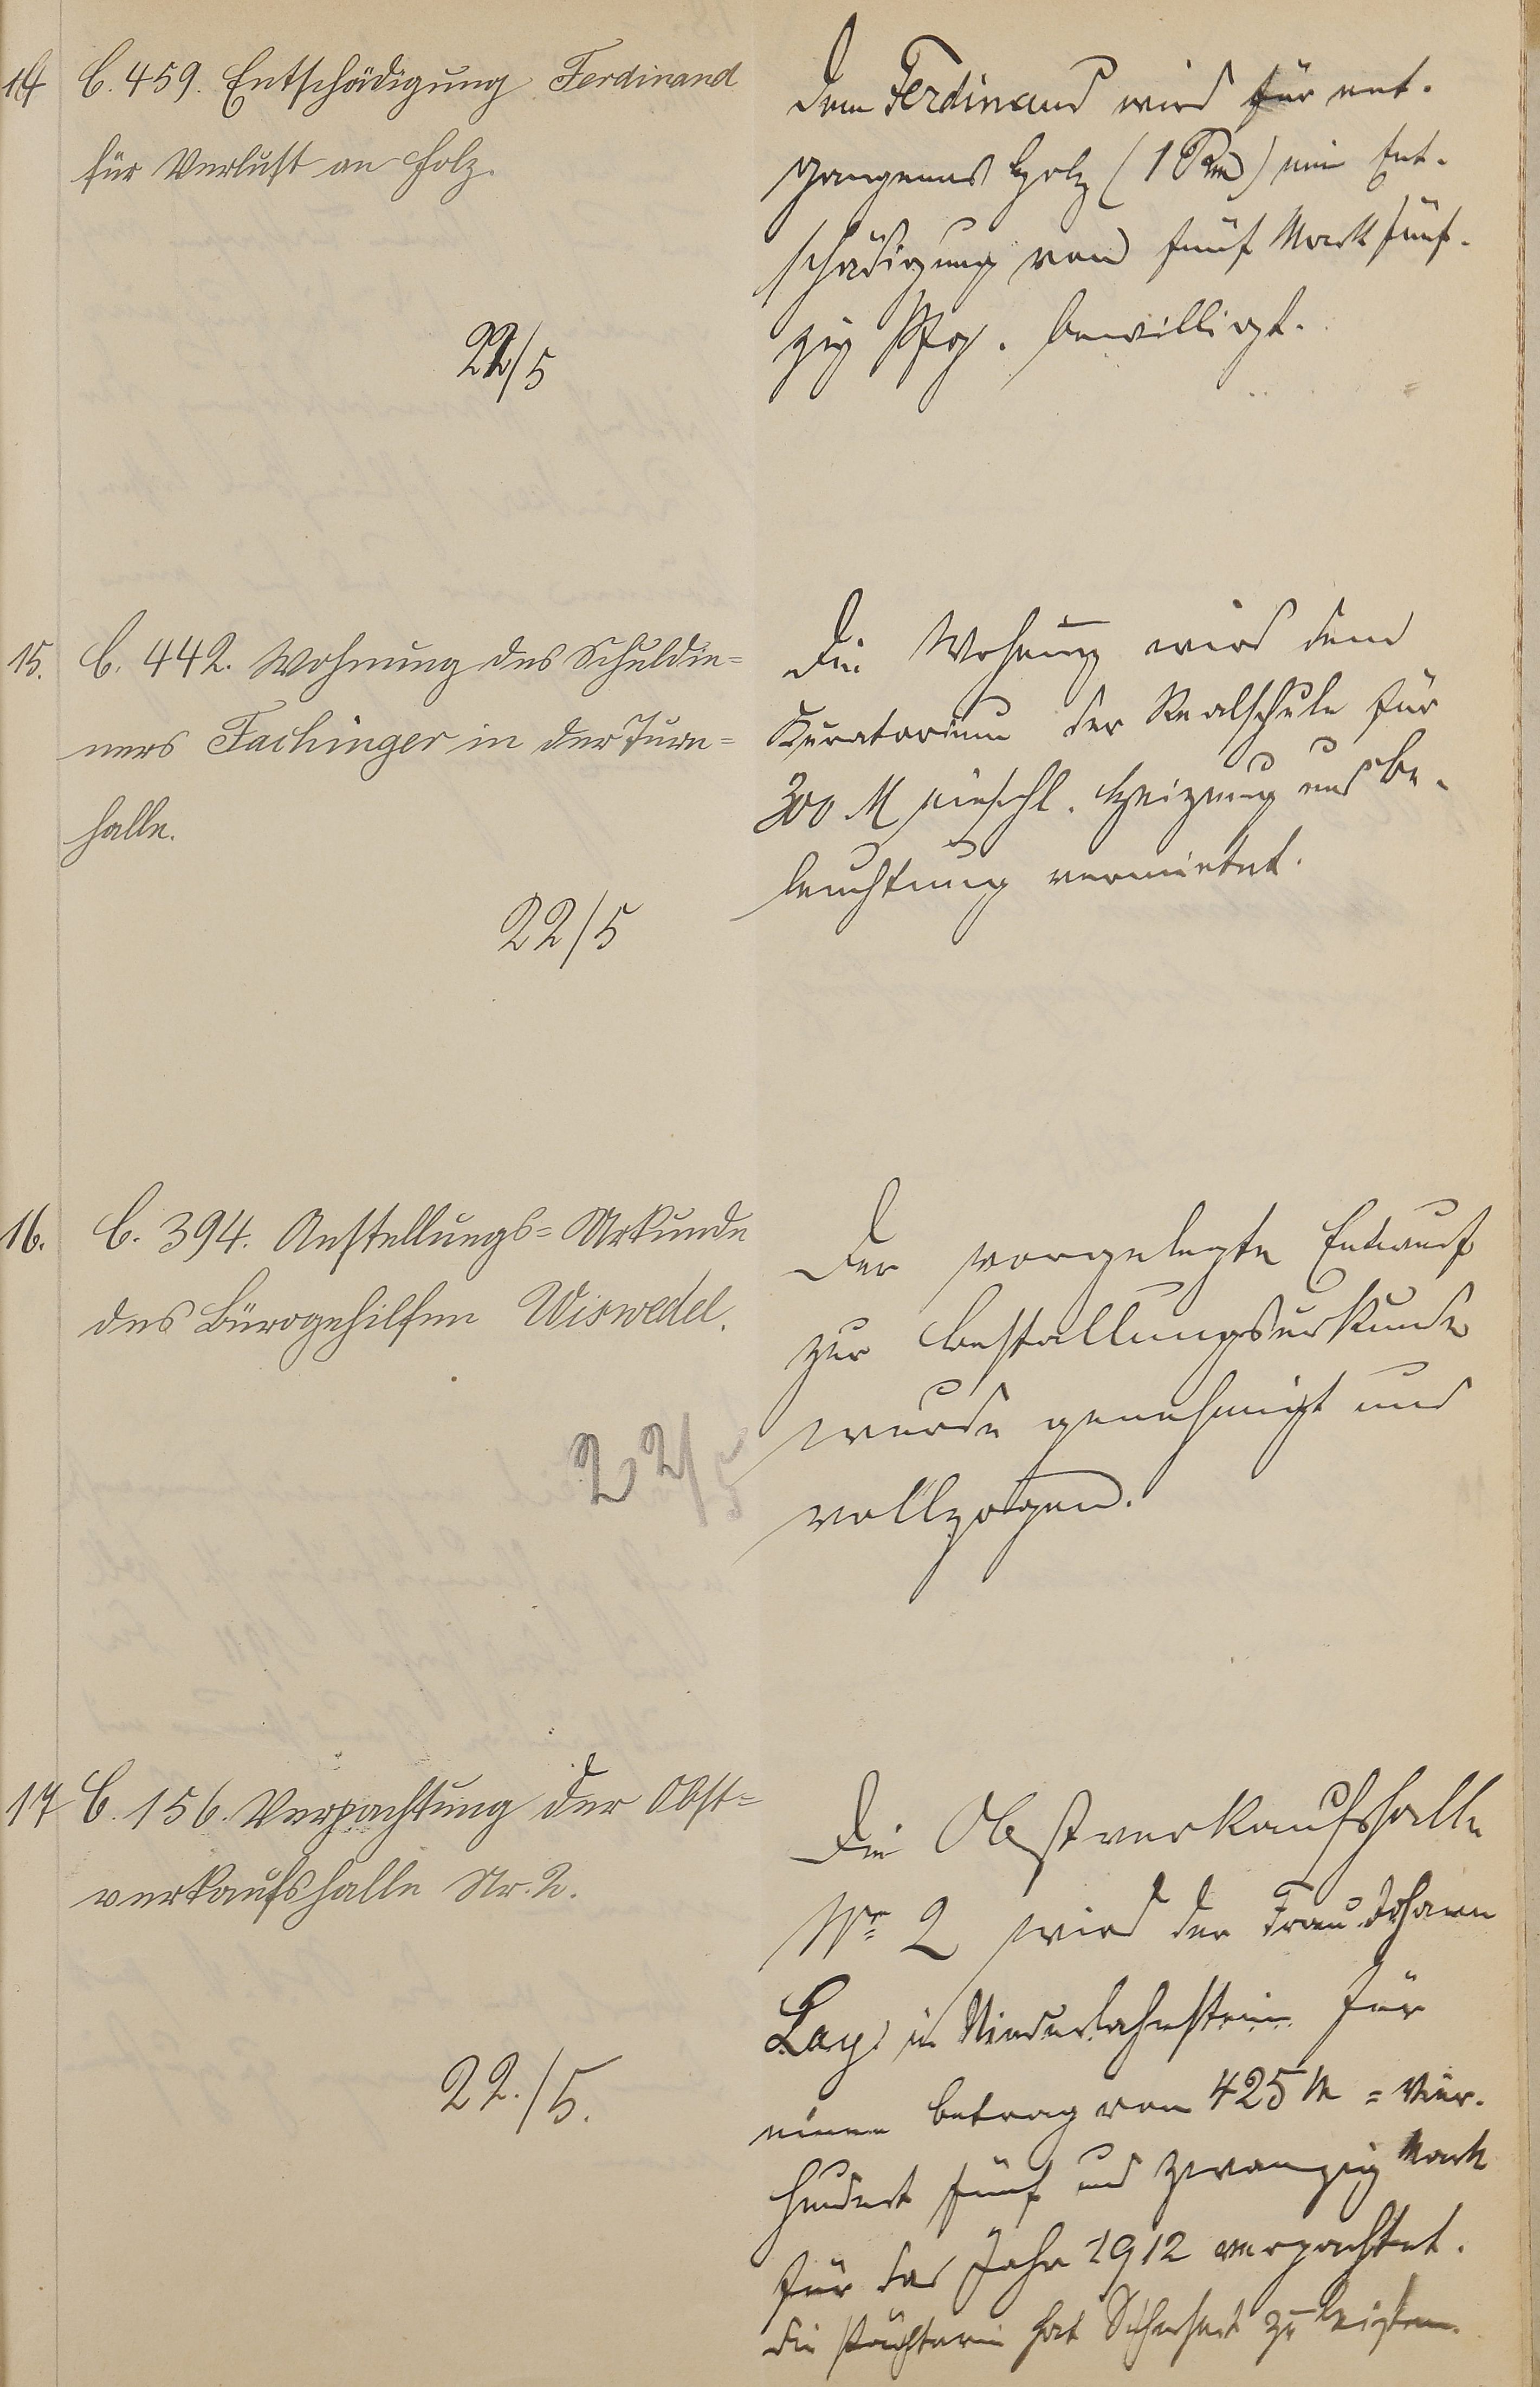 14 C. 459. Entschädigung Ferdinand
für Verlust an Holz.
22/5
Dem Ferdinand wird für ent-
gangenes Holz (1 Rm) eine Ent-
schädigung von fünf Mark fünf-
zig Pfg. bewilligt.
15. C. 442. Wohnung des Schuldie=
ners Fachinger in der Turn=
halle.
22/5
Die Wohnung wird dem
Kuratorium der Realschule für
300 M einschl. Heizung und Be-
leuchtung vermietet.
16. C. 394. Anstellungs=Urkunde
des Bürogehilfen Wiswedel.
22/5
Der vorgelegte Entwurf
zur Bestallungsurkunde
wurde genehmigt und
vollzogen.
17 C. 156. Verpachtung der Obst=
verkaufshalle Nr. 2.
22./5.
Die Obstverkaufshalle
Nr 2 wird der Frau Johann
Lay in Niederlahnstein für
einen Betrag von 425 M = Vier-
hundert fünf und zwanzig Mark
für das Jahr 1912 verpachtet.
Die Pächterin hat Sicherheit zu leisten.